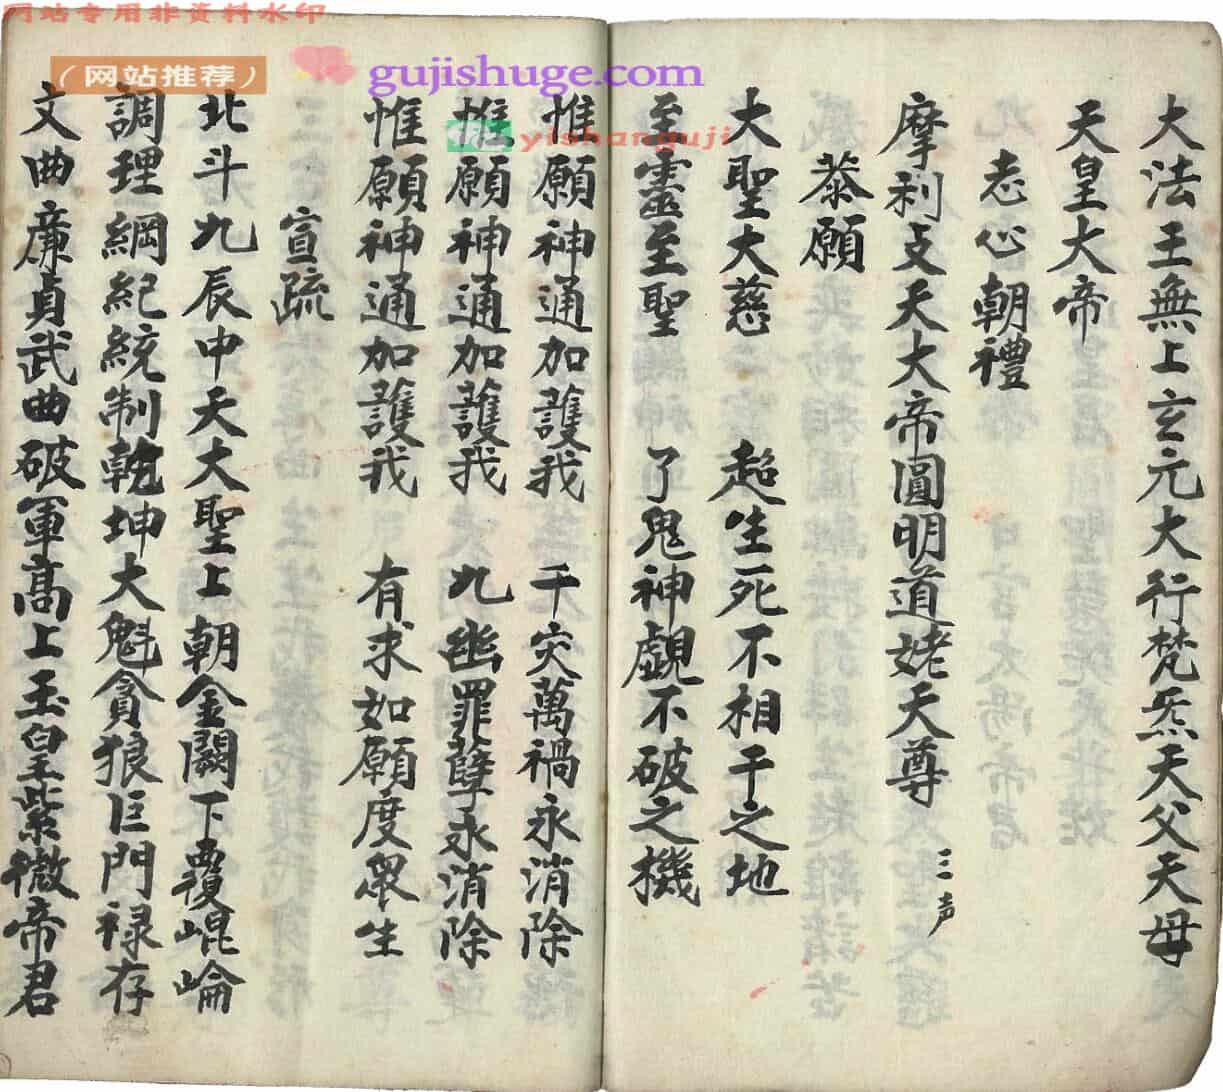 网站专用非资料水印
（网站推荐）
gujishuge.com
yishanguji
大法王無上玄元大行梵炁天父天母
天皇大帝
志心朝禮
摩利支天大帝圓明道姥天尊 三声
恭願
大聖大慈 超生死不相干之地
至靈至聖 了鬼神覷不破之機
惟願神通加護我 千灾萬禍永消除
惟願神通加護我 九幽罪孽永消除
惟願神通加護我 有求如願度衆生
宣疏
北斗九辰中天大聖上朝金闕下覆崐崙
調理綱紀統制乾坤大魁貪狼巨門禄存
文曲廉貞武曲破軍高上玉皇紫微帝君